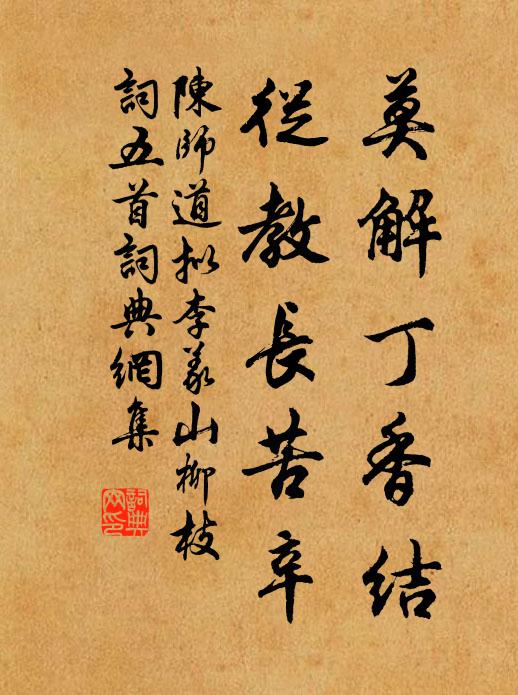 莫解丁香結
從教長苦辛
陳師道擬李義山柳枝
詞五首詞典網集
詞典网印